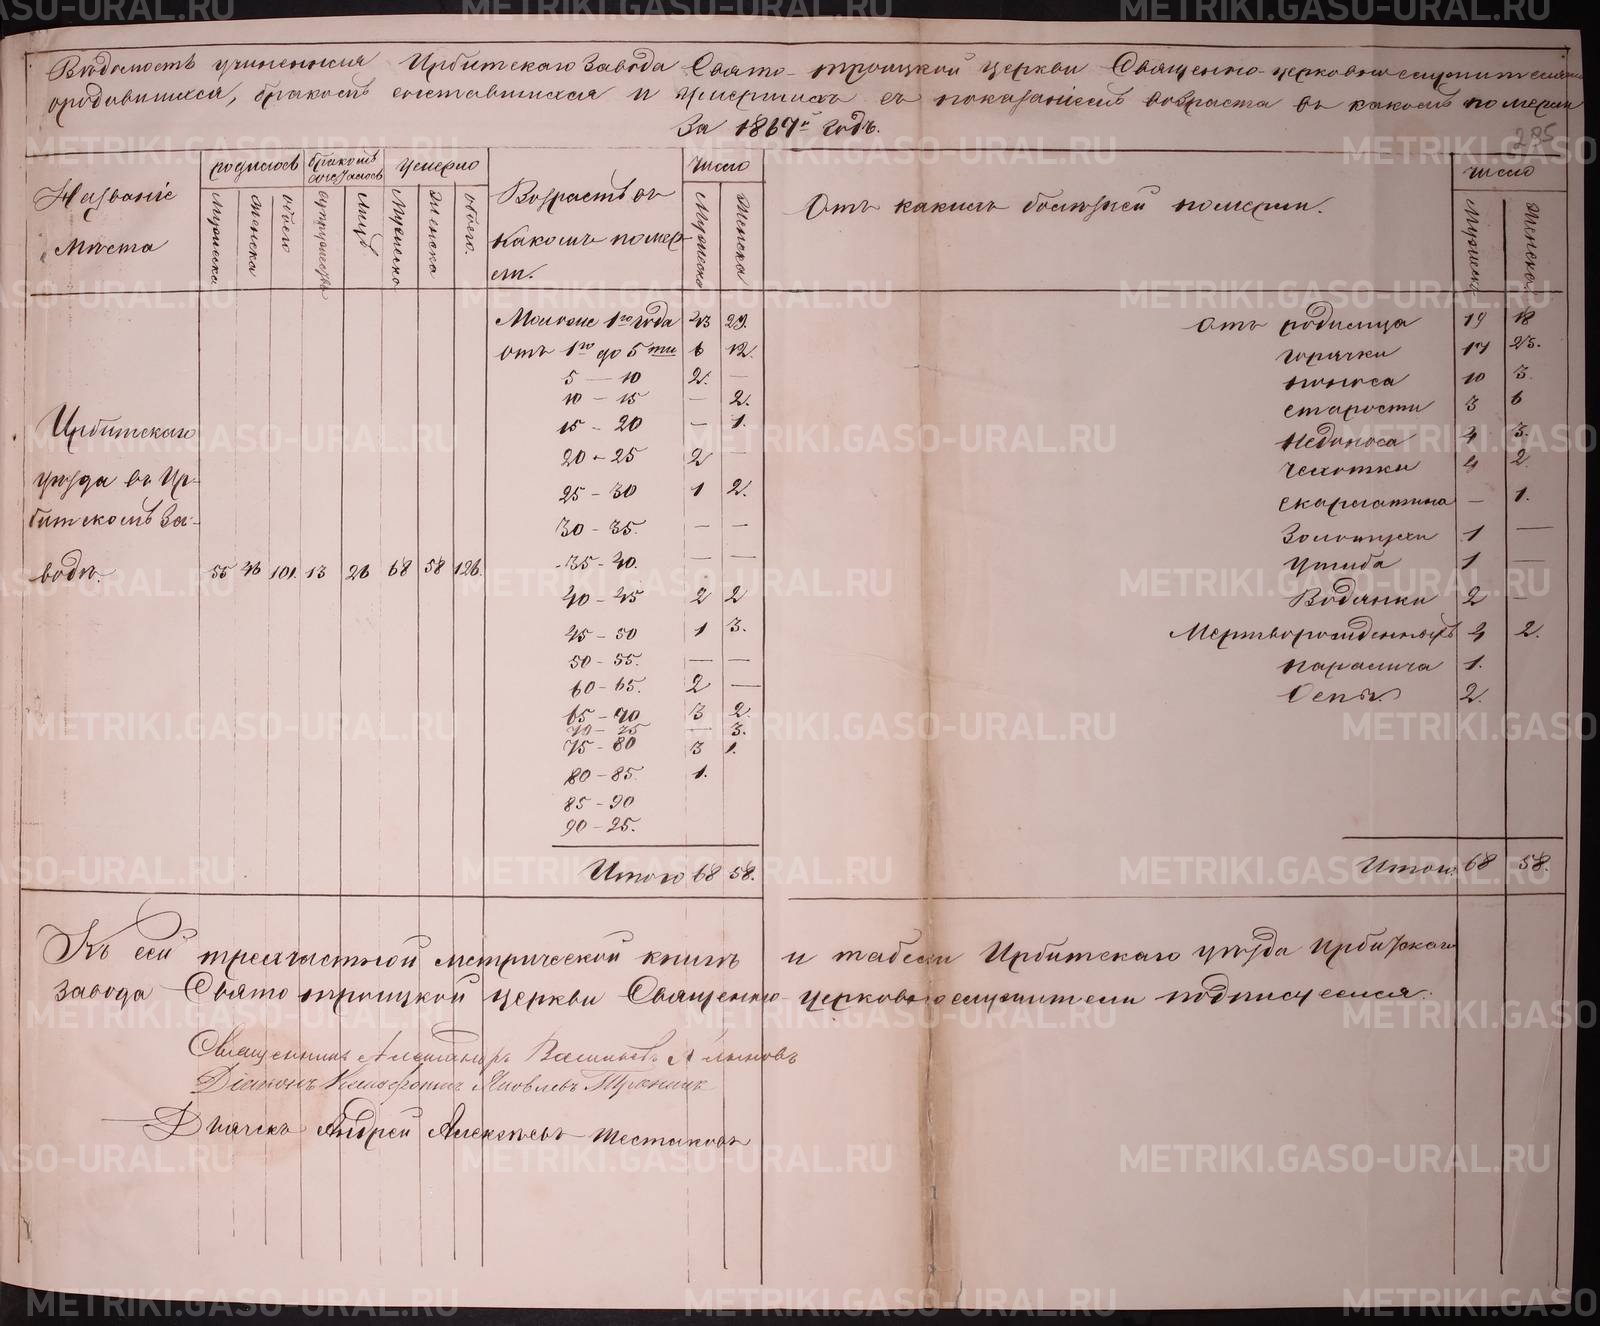 Вѣдомость учиненная Ирбитскаго Завода Свято-троицкой церкви Священно-церковнослужителями
о родившихся, бракомъ сочетавшихся и умершихъ съ показаніемъ возраста въ какомъ померли
За 1867й годъ.
285
Названіе Мѣста
родилось
Мужеска
Женска
обоего
бракомъ сочеталось
супружествъ
Лицъ
Умерло
Мужеска
Женска
обоего.
Возрастъ въ какомъ померли.
Число
Мужеска
Женска
Отъ какихъ болѣзней померли.
Число
Мужеска
Женска
Ирбитскаго
уѣзда въ Ир-
битскомъ За-
водѣ. 55 46 101. 13 26 68 58 126.
Моложе 1го года 43 29.
отъ 1го до 5ти 6 12.
5 — 10 2. —
10 — 15 — 2.
15 – 20 — 1.
20 – 25 2 —
25 – 30 1 2.
30 – 35. — —
35 – 40. — —
40 – 45 2 2
45 – 50 1 3.
50 – 55. — —
60 – 65. 2 —
65 – 70 3 2.
70 – 75 — 3.
75 – 80 3 1.
80 – 85. 1.
85 – 90
90 – 25.
Итого 68 58.
отъ родимца 19 18
горячки 17 23.
поноса 10 3.
старости 3 6
недоноса 4 3.
чехотки 4 2.
скарлатина — 1.
Золотухи 1 —
Ушиба 1 —
Водянки 2 —
Мертворожденныхъ 4 2.
паралича 1.
Оспы 2.
Итого 68 58.
Къ сей трехчастной метрической книгѣ и табели Ирбитскаго уѣзда Ирбитскаго
Завода Свято троицкой церкви Священно-церковнослужители подписуемся:
Священникъ Александръ Васильевъ
Діаконъ Яковлевъ
Дьячекъ Андрей Алексѣевъ Шестаковъ
METRIKI.GASO-URAL.RU